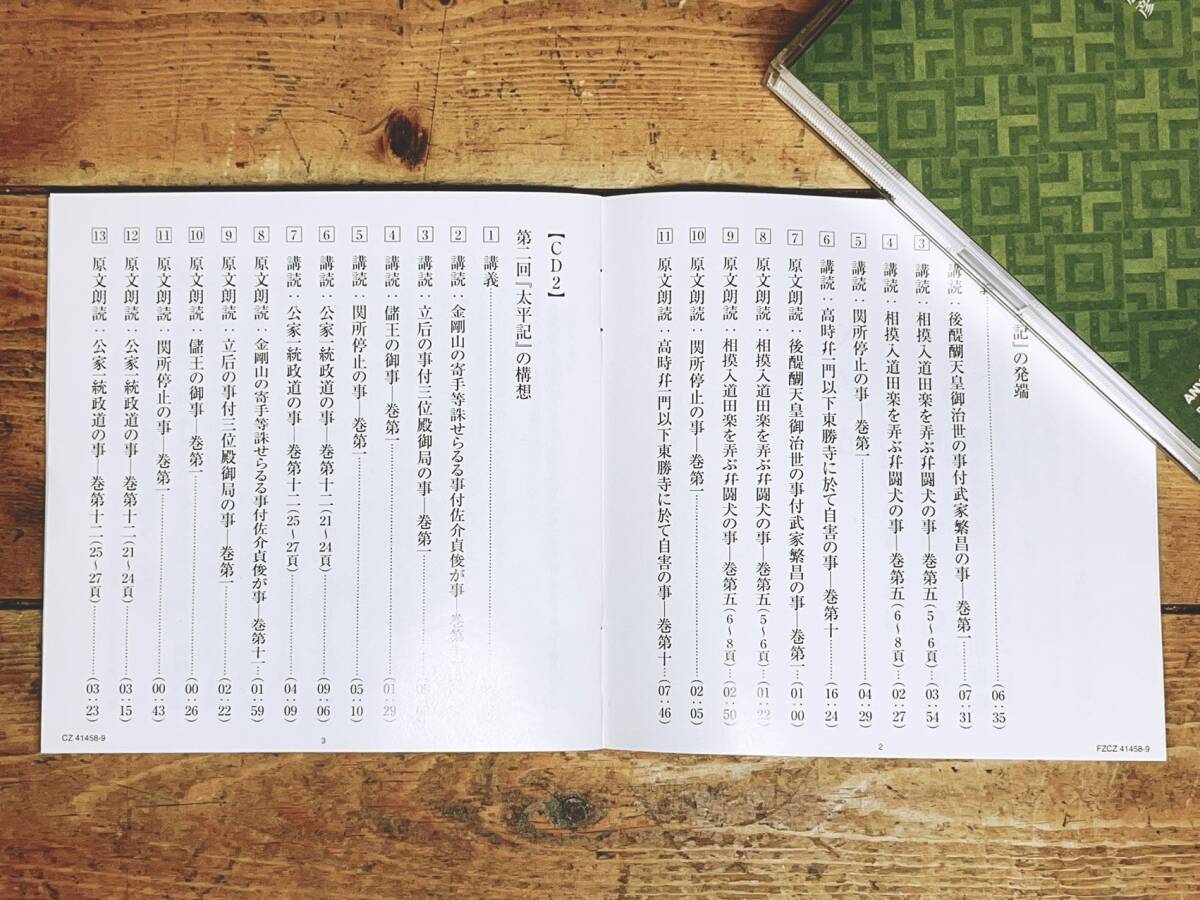 記』の発端
(06:35)
講読：後醍醐天皇御治世の事付武家繁昌の事―巻第一……(07:31)
3 講読：相摸入道田楽を弄ぶ幷闘犬の事―巻第五(5～6頁)…(03:54)
4 講読：相摸入道田楽を弄ぶ幷闘犬の事―巻第五(6～8頁)…(02:27)
5 講読：関所停止の事―巻第一……(04:29)
6 講読：高時幷一門以下東勝寺に於て自害の事―巻第十……(16:24)
7 原文朗読：後醍醐天皇御治世の事付武家繁昌の事―巻第一…(01:00)
8 原文朗読：相摸入道田楽を弄ぶ幷闘犬の事―巻第五(5～6頁)…(01:22)
9 原文朗読：相摸入道田楽を弄ぶ幷闘犬の事―巻第五(6～8頁)…(02:50)
10 原文朗読：関所停止の事―巻第一……(02:05)
11 原文朗読：高時幷一門以下東勝寺に於て自害の事―巻第十……(07:46)
2
FZCZ 41458-9
【CD2】
第二回『太平記』の構想
1 講義……
2 講読：金剛山の寄手等誅せらるる事付佐介貞俊が事―巻第十一
3 講読：立后の事付三位殿御局の事―巻第一……
4 講読：儲王の御事―巻第一……(01:29)
5 講読：関所停止の事―巻第一……(05:10)
6 講読：公家一統政道の事―巻第十二(21～24頁)……(09:06)
7 講読：公家一統政道の事―巻第十二(25～27頁)……(04:09)
8 原文朗読：金剛山の寄手等誅せらるる事付佐介貞俊が事―巻第十一…(01:59)
9 原文朗読：立后の事付三位殿御局の事―巻第一……(02:22)
10 原文朗読：儲王の御事―巻第一……(00:26)
11 原文朗読：関所停止の事―巻第一……(00:43)
12 原文朗読：公家一統政道の事―巻第十二(21～24頁)……(03:15)
13 原文朗読：公家一統政道の事―巻第十二(25～27頁)……(03:23)
3
CZ 41458-9